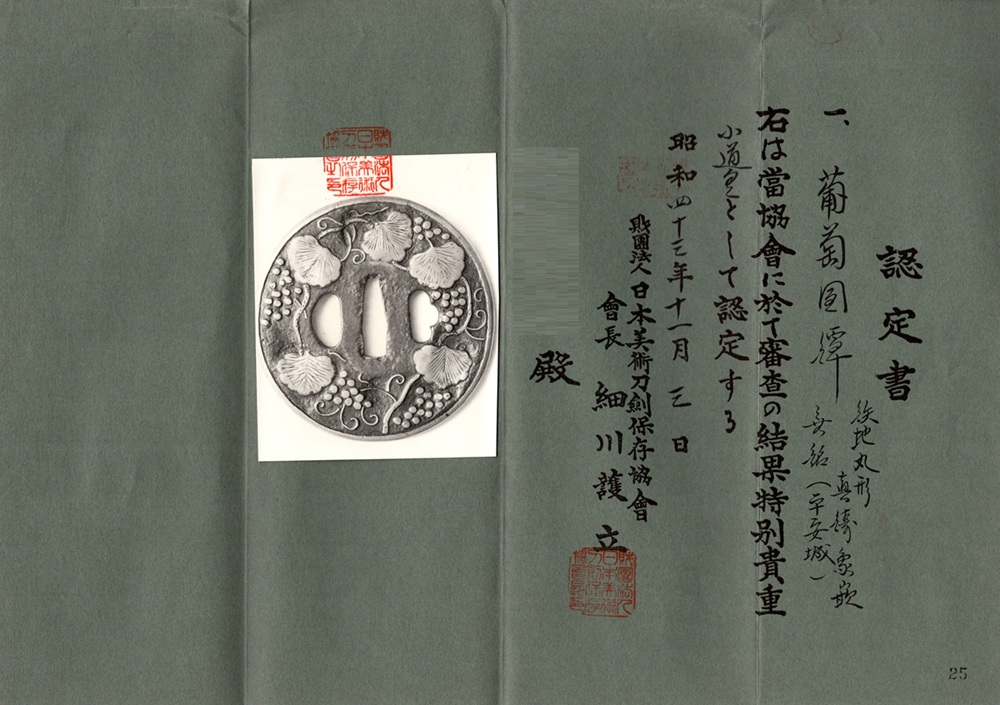 認定書
一、葡萄図鐔
鉄地丸形 真鍮象嵌
無銘(平安城)
右は當協會に於て審査の結果特別貴重
小道具として認定する
昭和四十三年十一月三日
財團法人日本美術刀劍保存協會
會長 細川護立
殿
25